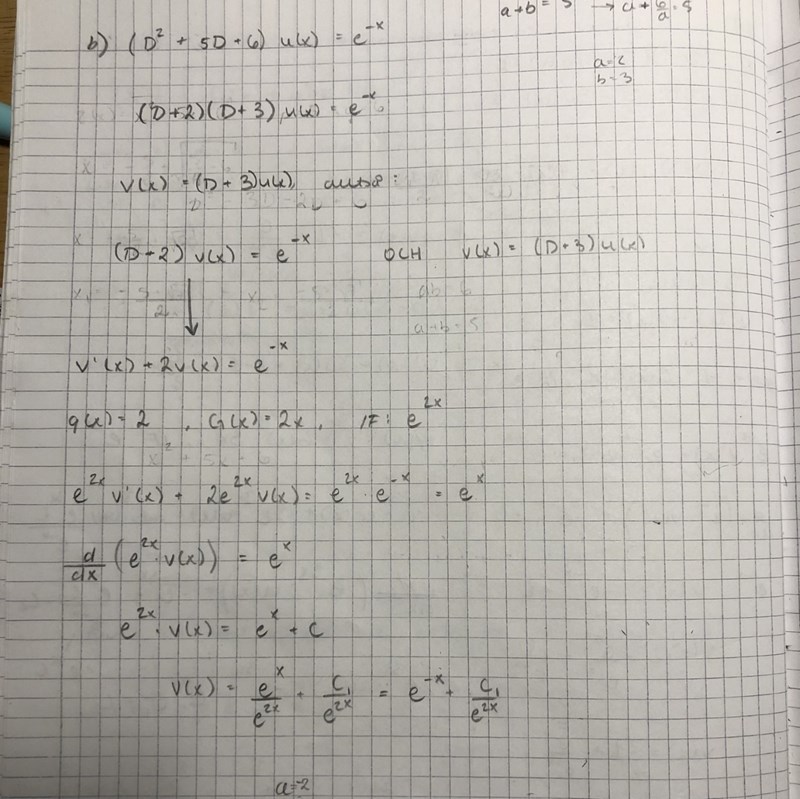 a+b = 5 → a + 6/a = 5
b) (D² + 5D + 6) u(x) = e^-x
a=2
b=3
(D+2)(D+3) u(x) = e^-x
v(x) = (D+3)u(x)
(D+2) v(x) = e^-x OCH v(x) = (D+3) u(x)
ab = 6
a+b = 5
v'(x) + 2v(x) = e^-x
g(x) = 2 , G(x) = 2x , IF: e^2x
e^2x v'(x) + 2e^2x v(x) = e^2x · e^-x = e^x
d/dx (e^2x · v(x)) = e^x
e^2x · v(x) = e^x + C
v(x) = e^x/e^2x + C₁/e^2x = e^-x + C₁/e^2x
a=-2